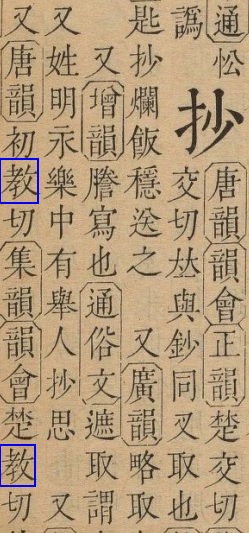 通忪
抄
唐韻韻會正韻楚交切
譌
交切𠀤與鈔同又取也
匙抄爛飯穩送之 又廣韻略取
又增韻謄寫也通俗文遮取謂
又姓明永樂中有舉人抄思 又
又唐韻初教切集韻韻會楚教切